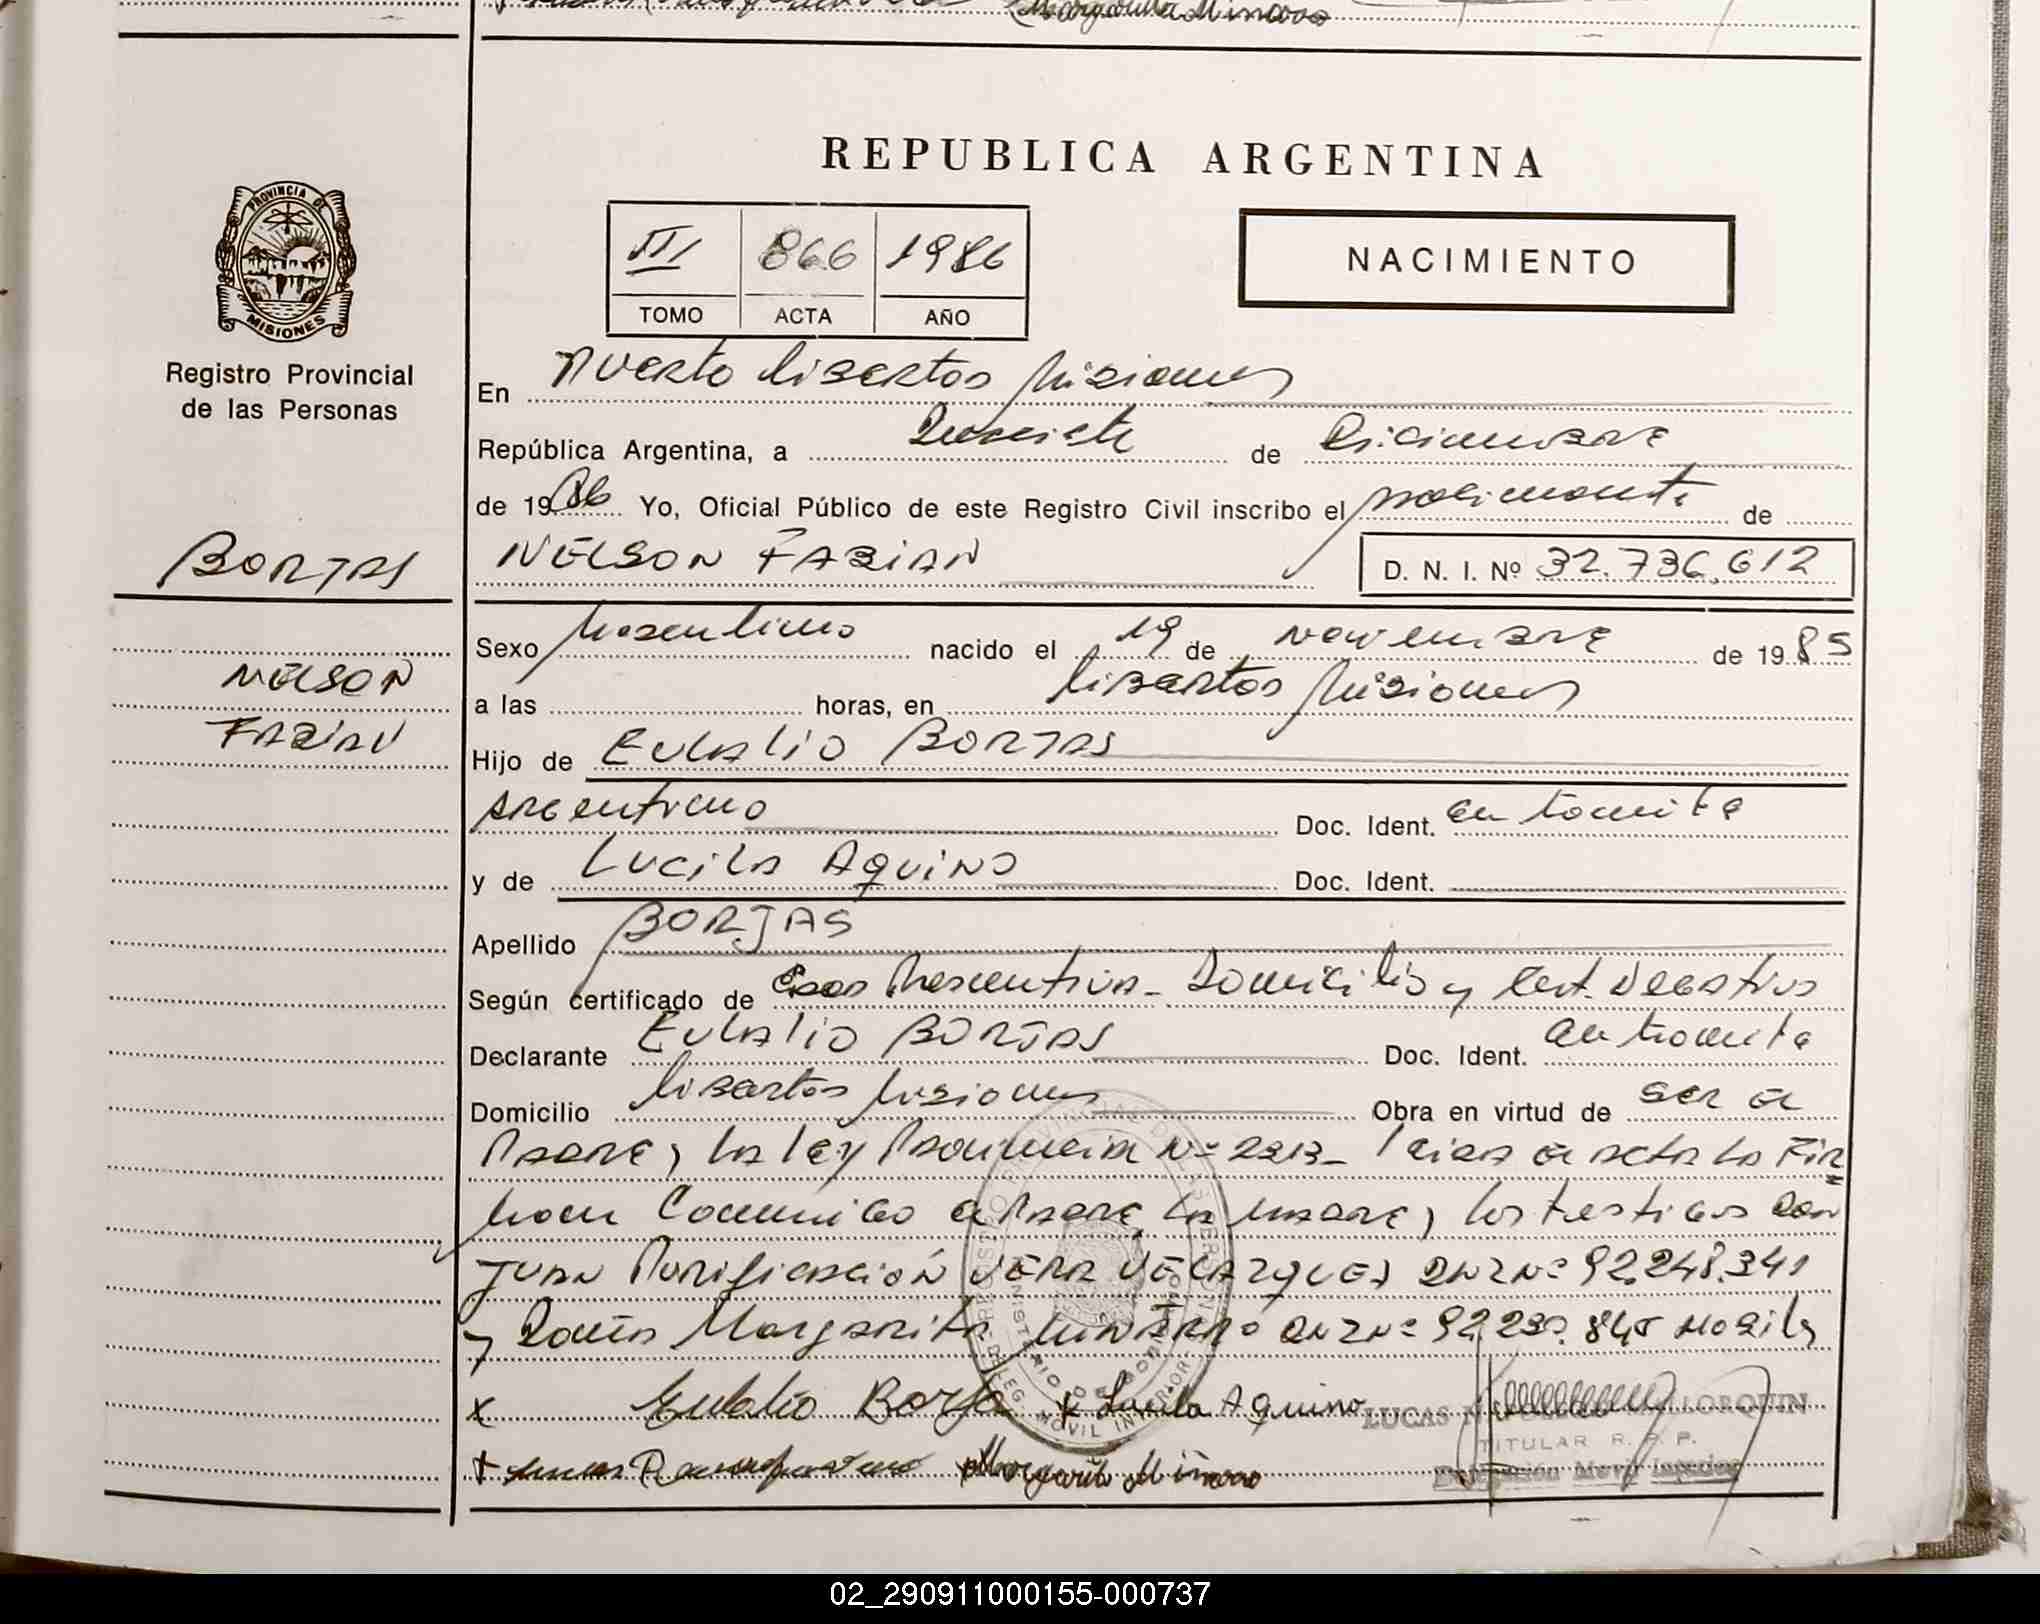 Margarita Minarro
REPUBLICA ARGENTINA
PROVINCIA DE
MISIONES
Registro Provincial
de las Personas
III 866 1986
TOMO ACTA AÑO
NACIMIENTO
En Puerto Libertad Misiones
República Argentina, a Diecisiete de Diciembre
de 1986 Yo, Oficial Público de este Registro Civil inscribo el nacimiento de
BORJAS
NELSON FABIAN D. N. I. Nº 32.736.612
Sexo Masculino nacido el 19 de noviembre de 1985
NELSON
FABIAN
a las horas, en Libertad Misiones
Hijo de EULALIO BORJAS
Argentino Doc. Ident.
y de LUCILA AQUINO Doc. Ident.
Apellido BORJAS
Según certificado de Domicilio y Cert. Negativo
Declarante EULALIO BORJAS Doc. Ident.
Domicilio Libertad Misiones Obra en virtud de ser el
Padre, la ley Provincial Nº Leida el acta la Fir
man Conmigo el Padre, la Madre, los testigos Don
JUAN Purificación VERA VELAZQUEZ DNI Nº 92.248.341
y Doña Margarita DNI Nº
x Eulalio Borja x Lucila Aquino
LUCAS MALLORQUIN
TITULAR R. P. P.
Margarita Minarro
Delegación Movil
02_290911000155-000737